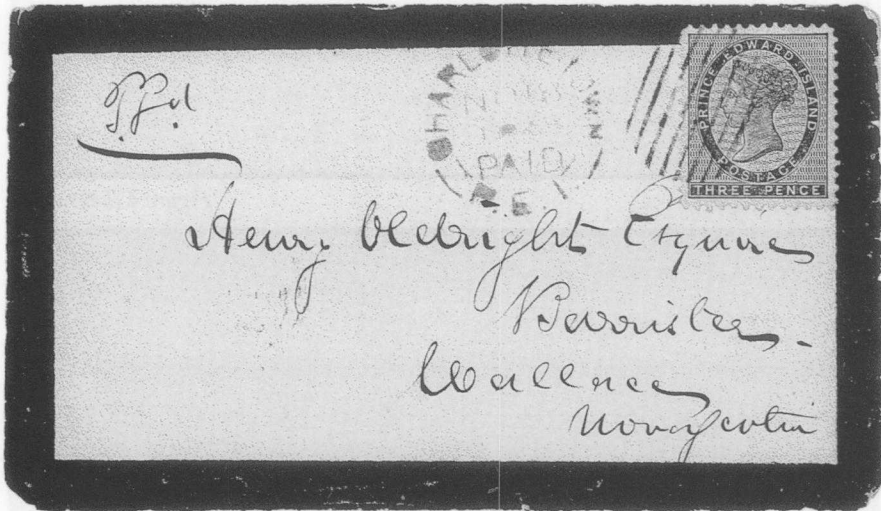 P'd
CHARLOTTETOWN
PAID
P.E.I.
PRINCE EDWARD ISLAND
POSTAGE
THREE PENCE
Henry Oldright Esquire
Barrister
Wallace
Nova Scotia